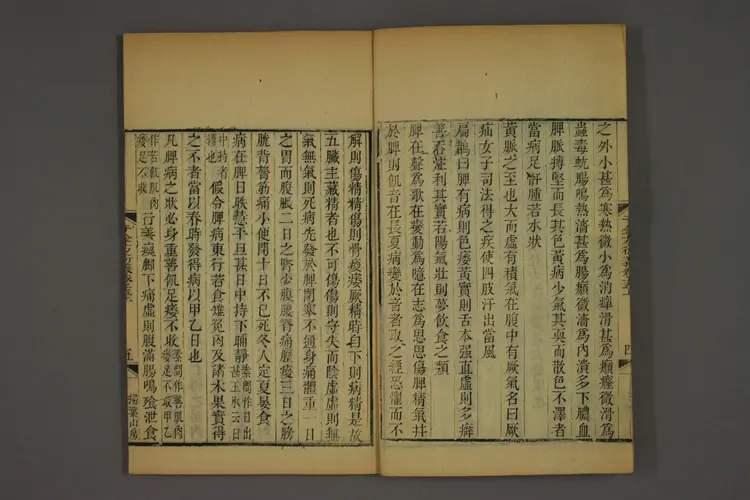 之外小甚爲寒熱微小爲消癉滑甚爲㿗癃微滑爲
蟲毒蚘腸鳴熱濇甚爲腸㿗微濇爲內潰多下膿血
脾脈搏堅而長其色黃病少氣其耎而散色不澤者
當病足骭腫若水狀
黃脈之至也大而虛有積氣在腹中有厥氣名曰厥
疝女子同法得之疾使四肢汗出當風
扁鵲曰脾有病則色痿黃實則舌本强直虛則多癖
善吞注利其實若陽氣壯則夢飲食之類
脾在聲爲歌在變動爲噫在志爲思思傷脾精氣并
於脾則飢音在長夏病變於音者取之經恐懼而不
解則傷精精傷則骨痠痿厥精時自下則病精是故
五臟主藏精者也不可傷傷則守失而陰虛虛則無
氣無氣則死病先發於脾閉塞不通身痛體重一日
之胃而腹脹二日之腎少腹腰脊痛脛痠三日之膀
胱背膂筋痛小便閉十日不已死冬人定夏晏食
病在脾日昳慧平旦甚日中持下晡靜素問作日出甚王氷云日
中持者謬也假令脾病東行若食雉兔肉及諸木果實得
之不者當以春時發得病以甲乙日也
凡脾病之狀必身重善飢足痿不收素問作善肌肉痿足不收甲乙
作苦飢肌肉痿足不收行善瘈脚下痛虛則腹滿腸鳴飱泄食
四
五
掃葉山房